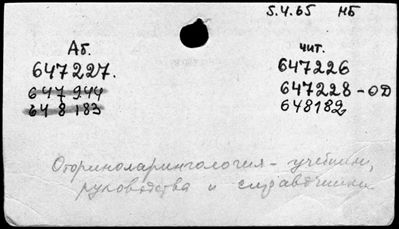 5.4.65 НБ
Аб. чит.
647227. 647226
647944 647228-ОД
648183 648182
Оториноларингология - учебники,
руководства и справочники